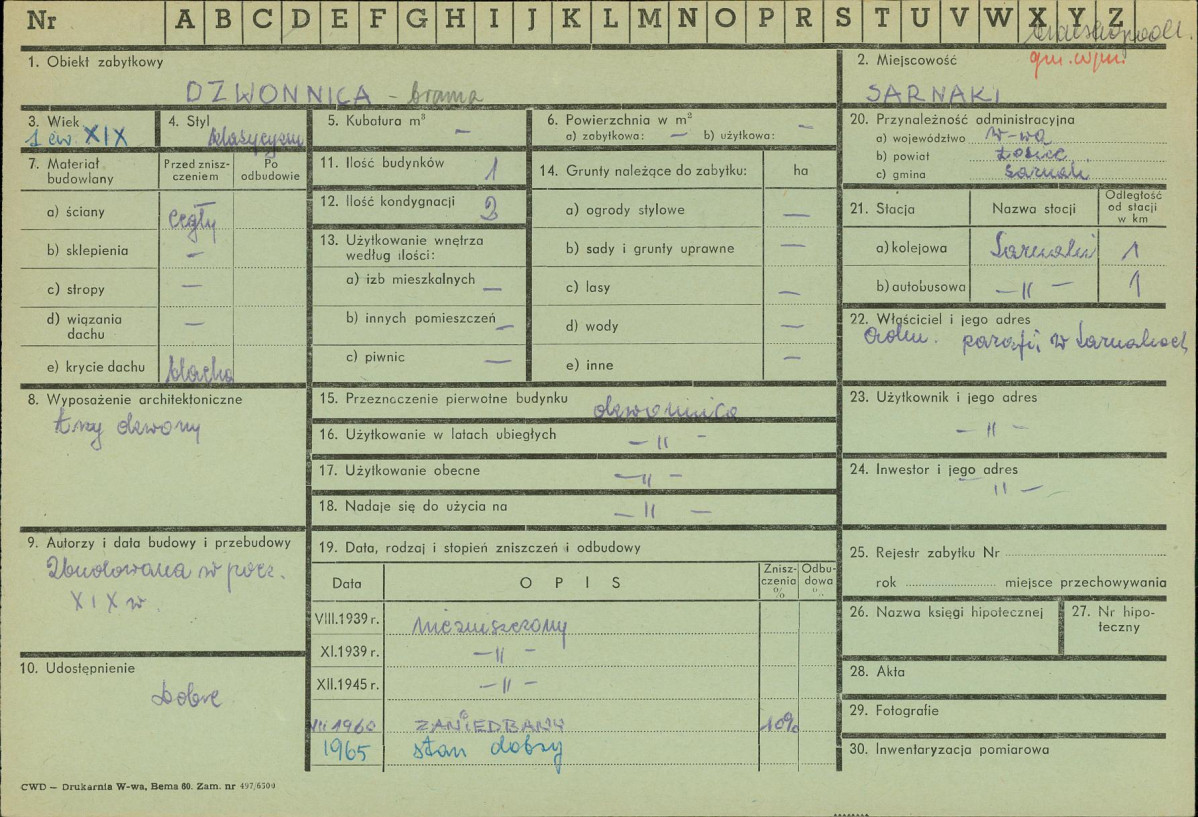 Nr A B C D E F G H I J K L M N O P R S T U V W X Y Z
1. Obiekt zabytkowy
DZWONNICA - brama
2. Miejscowość
SARNAKI
3. Wiek
1 ćw. XIX
4. Styl
klasycyzm
5. Kubatura m³
—
6. Powierzchnia w m²
a) zabytkowa: — b) użytkowa: —
20. Przynależność administracyjna
a) województwo W-wa
b) powiat Łosice
c) gmina Sarnaki
7. Materiał budowlany
Przed zniszczeniem
Po odbudowie
a) ściany cegły
b) sklepienia —
c) stropy —
d) wiązania dachu —
e) krycie dachu blacha
11. Ilość budynków 1
12. Ilość kondygnacji 2
13. Użytkowanie wnętrza
według ilości:
a) izb mieszkalnych —
b) innych pomieszczeń —
c) piwnic —
14. Grunty należące do zabytku: ha
a) ogrody stylowe —
b) sady i grunty uprawne —
c) lasy —
d) wody —
e) inne —
21. Stacja
Nazwa stacji
Odległość
od stacji
w km
a) kolejowa Sarnaki 1
b) autobusowa — " — 1
22. Właściciel i jego adres
parafii w Sarnakach
8. Wyposażenie architektoniczne
trzy dzwony
15. Przeznaczenie pierwotne budynku dzwonnica
16. Użytkowanie w latach ubiegłych — " —
17. Użytkowanie obecne — " —
18. Nadaje się do użycia na — " —
23. Użytkownik i jego adres
— " —
24. Inwestor i jego adres
" —
9. Autorzy i data budowy i przebudowy
Zbudowana w pocz.
XIX w.
19. Data, rodzaj i stopień zniszczeń i odbudowy
Data
OPIS
Zniszczenia %
Odbudowa %
VIII.1939 r. niezniszczony
XI.1939 r. — " —
XII.1945 r. — " —
VIII 1960 ZANIEDBANY 10%
1965 stan dobry
10. Udostępnienie
Dobre
25. Rejestr zabytku Nr
rok miejsce przechowywania
26. Nazwa księgi hipotecznej
27. Nr hipoteczny
28. Akta
29. Fotografie
30. Inwentaryzacja pomiarowa
CWD — Drukarnia W-wa, Bema 60. Zam. nr 497/6500